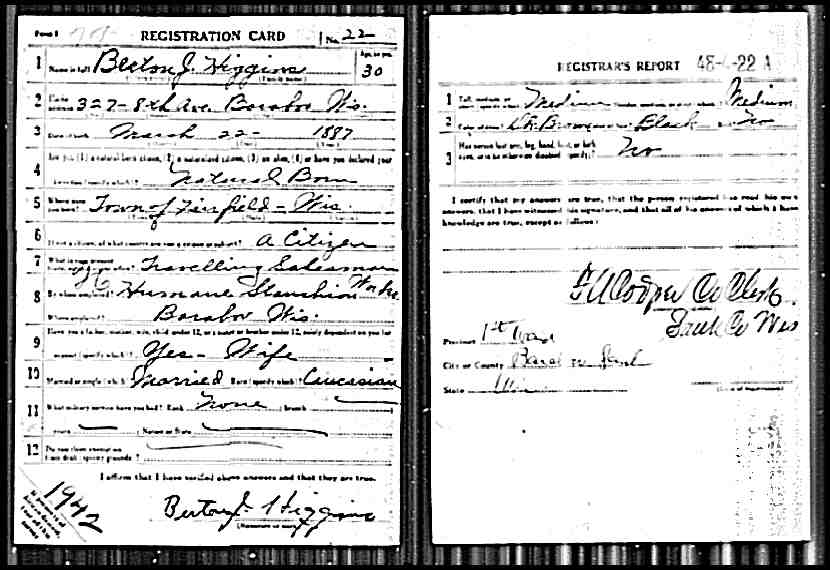 Form 1 REGISTRATION CARD No. 22
Age, in yrs.
1 Name in full Berton J. Higgins 30
2 Home address 327-8th Ave. Baraboo Wis.
3 Date of birth March 22- 1887
4 Are you (1) a natural born citizen, (2) a naturalized citizen, (3) an alien, (4) or have you declared your
intention (specify which)? Natural Born
5 Where were you born? Town of Fairfield - Wis.
6 If not a citizen, of what country are you a citizen or subject? A Citizen
7 What is your present Travelling Salesman
8 By whom employed? Humane Stanchion Works
Where employed? Baraboo Wis.
9 Have you a father, mother, wife, child under 12, or a sister or brother under 12, solely dependent on you for
support (specify which)? Yes - Wife
10 Married or single (which)? Married Race (specify which)? Caucasian
11 What military service have you had? Rank None ; branch
years ; Nation or State
12 Do you claim exemption
from draft (specify grounds)?
I affirm that I have verified above answers and that they are true.
1942
Berton J. Higgins
(Signature or mark)
REGISTRAR'S REPORT 48-4-22 A
1 Tall, medium, or Medium Slender, medium, or stout (which)? Medium
2 Color of eyes? Dk. Brown Color of hair? Black Bald? No
3 Has person lost arm, leg, hand, foot, or both
eyes, or is he otherwise disabled (specify)? No
I certify that my answers are true, that the person registered has read his own
answers, that I have witnessed his signature, and that all of his answers of which I have
knowledge are true, except as follows:
Cooper Co Clerk.
Sauk Co Wis
Precinct 1st Ward
City or County Baraboo Sauk
State Wis
(Date of registration)